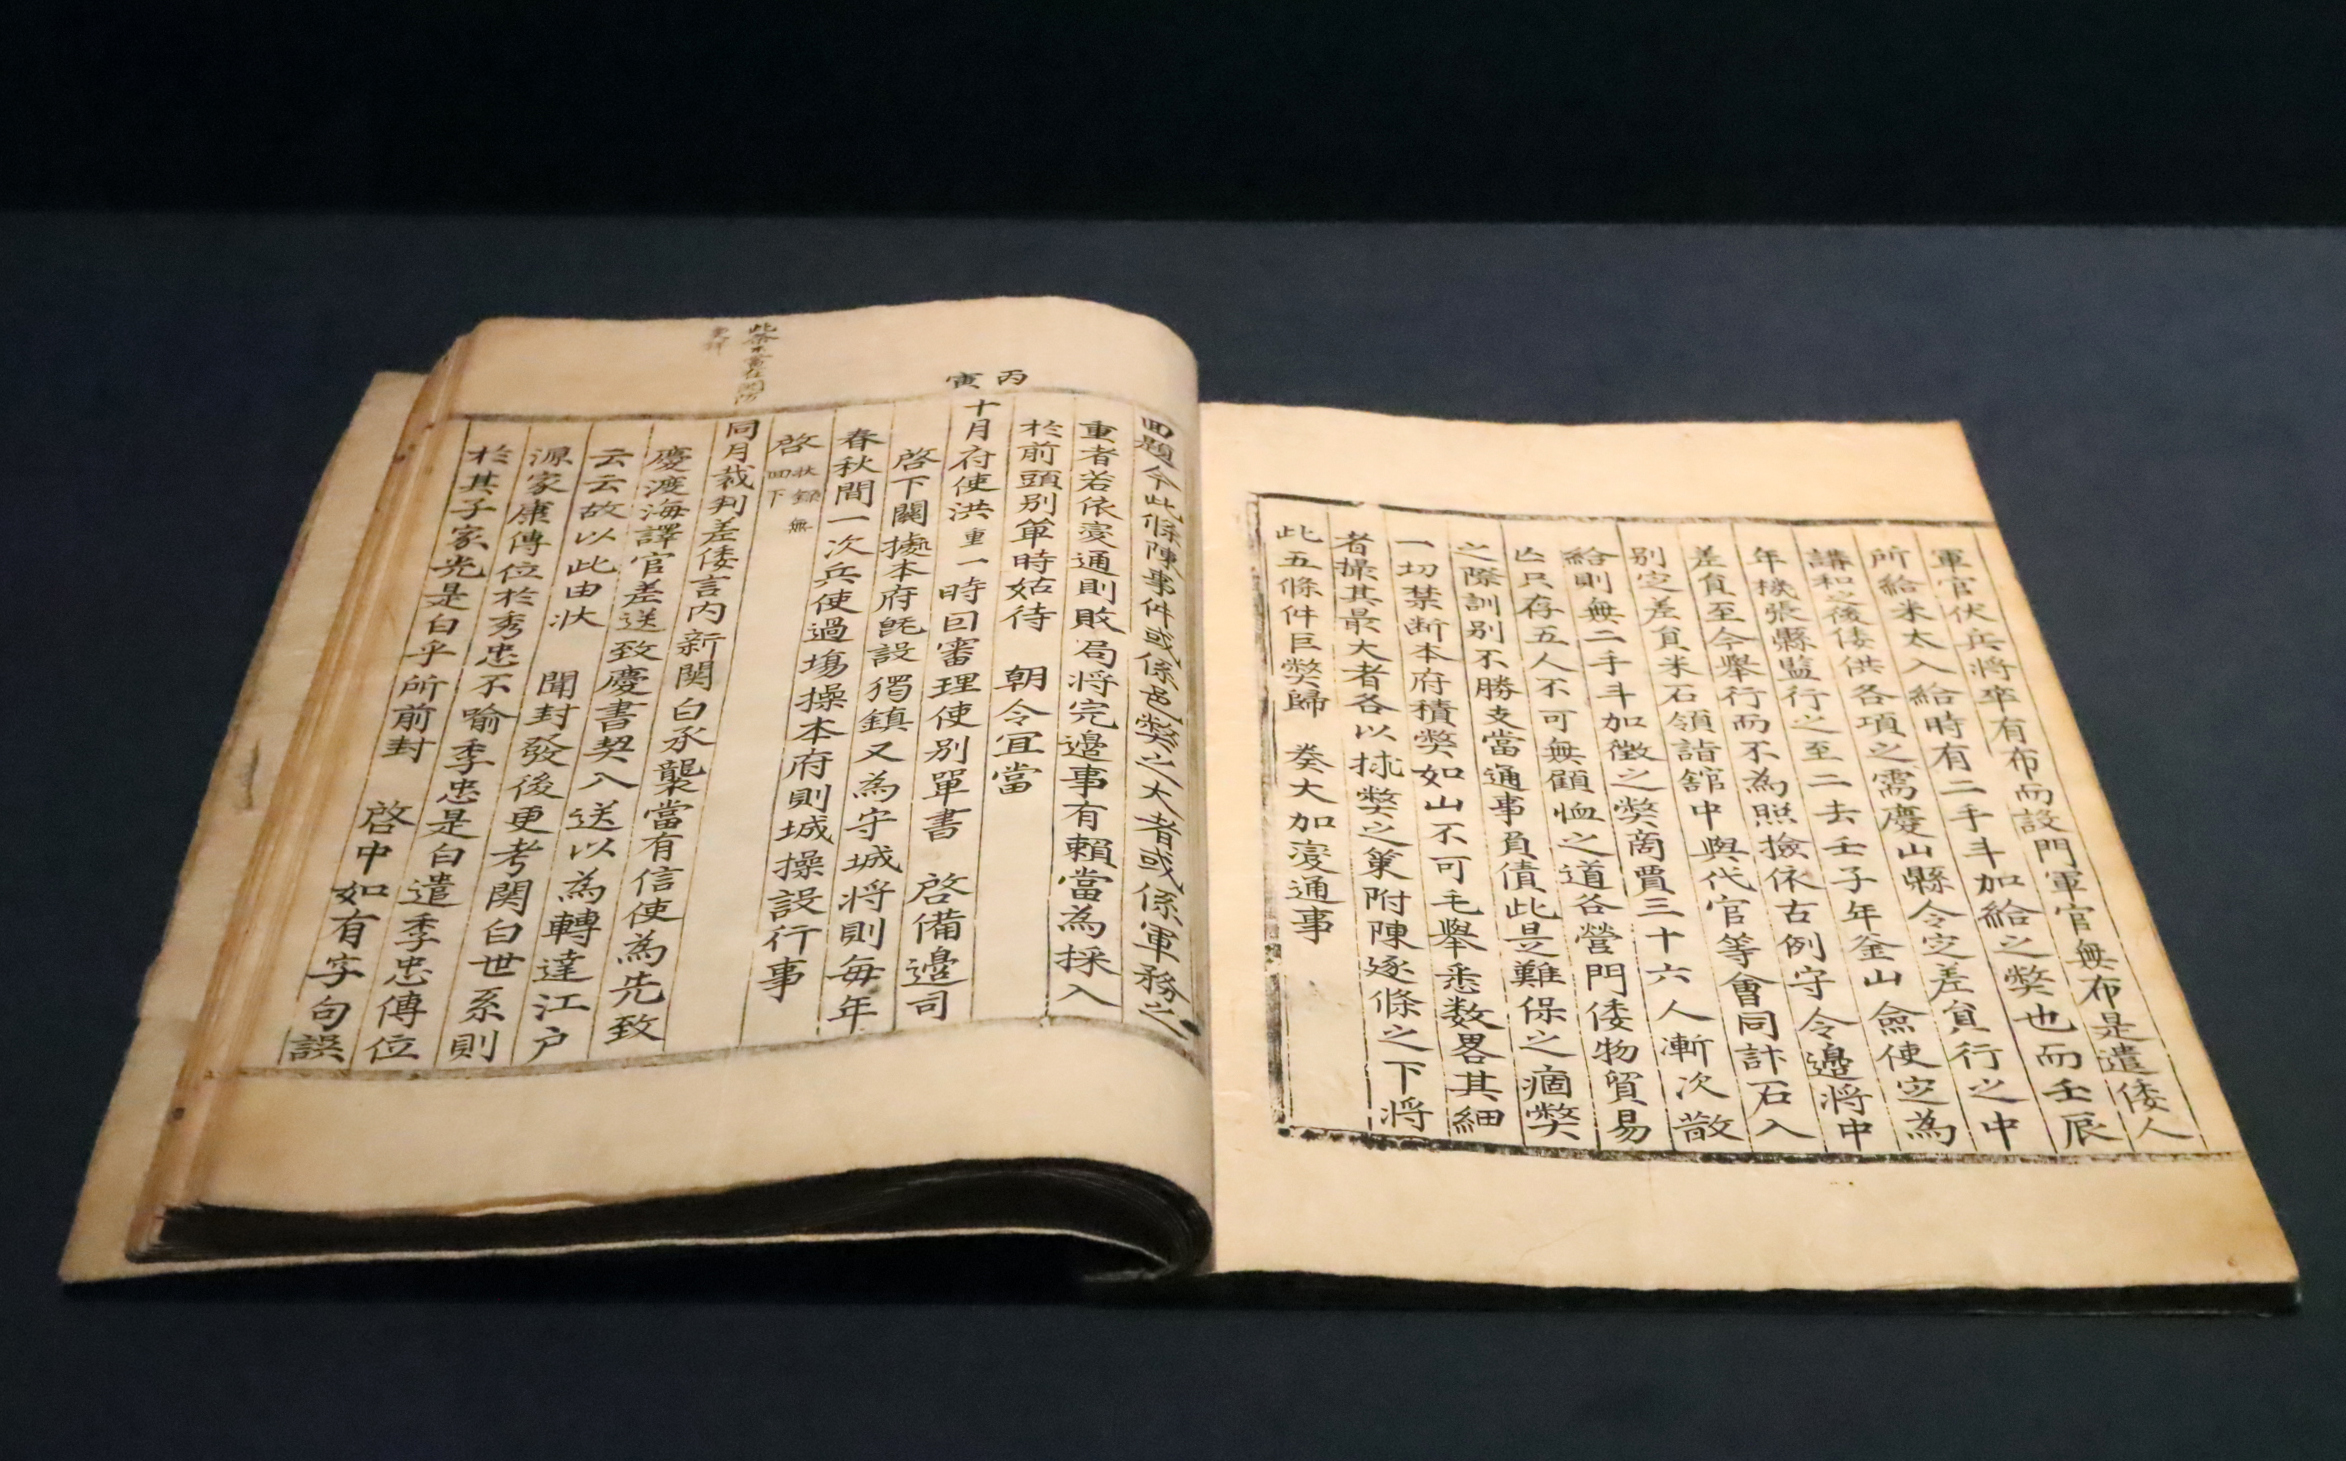 軍官伏兵將卒有布而設門軍官無布是遣倭人
所給米太入給時有二手斗加給之弊也而壬辰
講和之後倭供各項之需慶山縣令定差負行之中
年機張縣監行之至二去壬子年釜山僉使定為
差負至今舉行而不為照撿依古例守令邊將中
別定差負米石領詣舘中與代官等會同計石入
給則無二手斗加徵之弊商賈三十六人漸次散
亾只存五人不可無顧恤之道各營門倭物貿易
之際訓別不勝支當通事負債此是難保之痼弊
一切禁断本府積弊如山不可毛舉悉数畧其細
者撮其最大者各以捄弊之䇿附陳逐條之下將
此五條件巨弊歸 奏大加變通事
回題令此條陳事件或係邑弊之大者或係軍務之
重者若依變通則敗局將完邊事有賴當為採入
於前頭別單時姑待 朝令冝當
丙寅
十月府使洪重一時回審理使別單書 啓備邊司
啓下關據本府旣設獨鎮又為守城將則每年
春秋間一次兵使過塲操本府則城操設行事
啓
狀錄無
回下
同月裁判差倭言内新関白承襲當有信使為先致
慶渡海譯官差送致慶書契入送以為轉達江户
云云故以此由狀 聞封發後更考関白世系則
源家康傳位於秀忠不喻季忠是白遣季忠傳位
於其子家光是白乎所前封 啓中如有字句誤